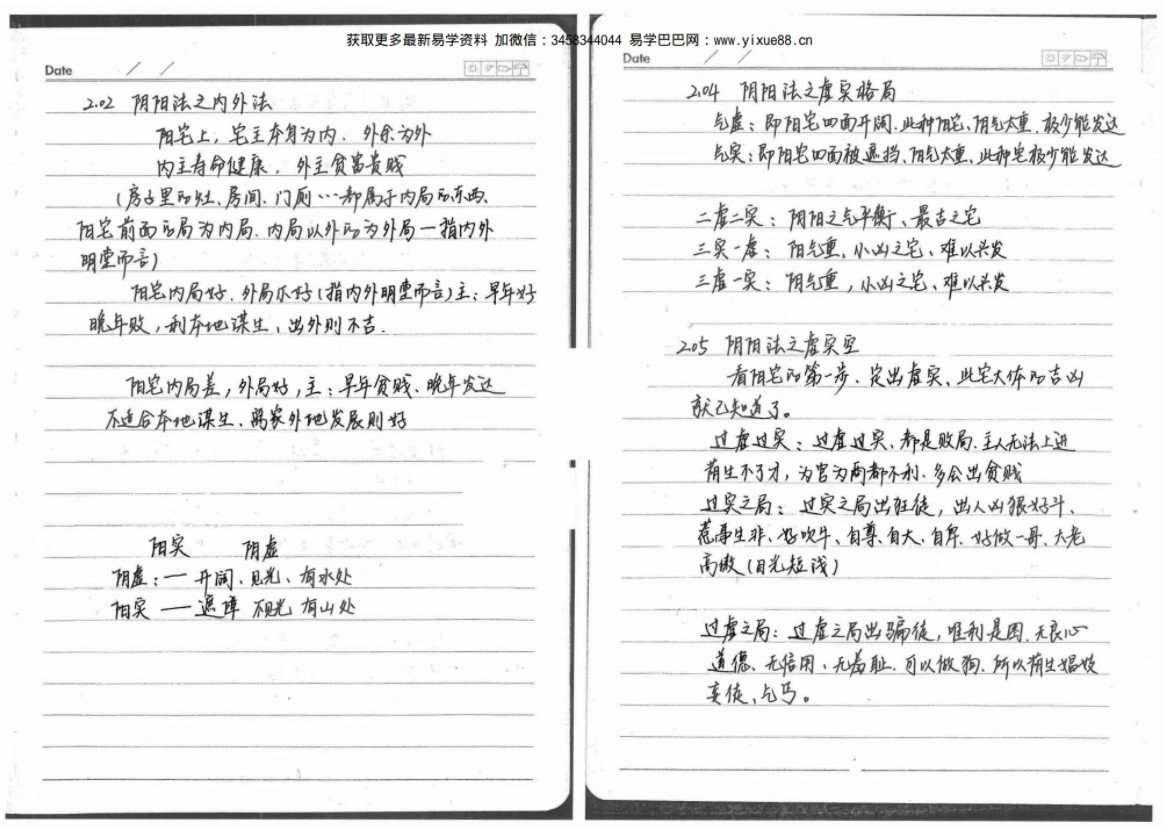 获取更多最新易学资料 加微信：3458344044 易学巴巴网：www.yixue88.cn
Date / /
2.02 阴阳法之内外法
阳宅上，宅主本身为内、外余为外
内主寿命健康、外主贫富贵贱
（房子里的灶、房间、门厕…都属于内局的东西、
阳宅前面的局为内局、内局以外的为外局一指内外
明堂而言）
阳宅内局好、外局不好（指内外明堂而言）主：早年好
晚年败，利本地谋生、出外则不吉.
阳宅内局差，外局好，主：早年贫贱、晚年发达
不适合本地谋生、离家外地发展则好
阳实 阴虚
阴虚：— 开阔、见光、有水处
阳实 — 遮障 不见光 有山处
Date / /
2.04 阴阳法之虚实格局
气虚：即阳宅四面开阔.此种阳宅、阴气太重、极少能发达
气实：即阳宅四面被遮挡、阳气太重、此种宅极少能发达
二虚二实：阴阳之气平衡、最吉之宅
三实一虚：阳气重，小凶之宅、难以兴发
三虚一实：阴气重，小凶之宅、难以兴发
2.05 阴阳法之虚实空
看阳宅的第一步、定出虚实、此宅大体的吉凶
就已知道了。
过虚过实：过虚过实、都是败局.主人无法上进
荫生不了才，为官为商都不利、多会出贫贱
过实之局：过实之局出狂徒，出人凶狠好斗、
惹事生非、好吹牛、自尊、自大、自卑、好做一哥、大老
高傲（目光短浅）
过虚之局：过虚之局出骗徒，唯利是图、无良心
道德、无信用、无羞耻、可以做狗、所以荫生娼妓
妄徒、乞丐。